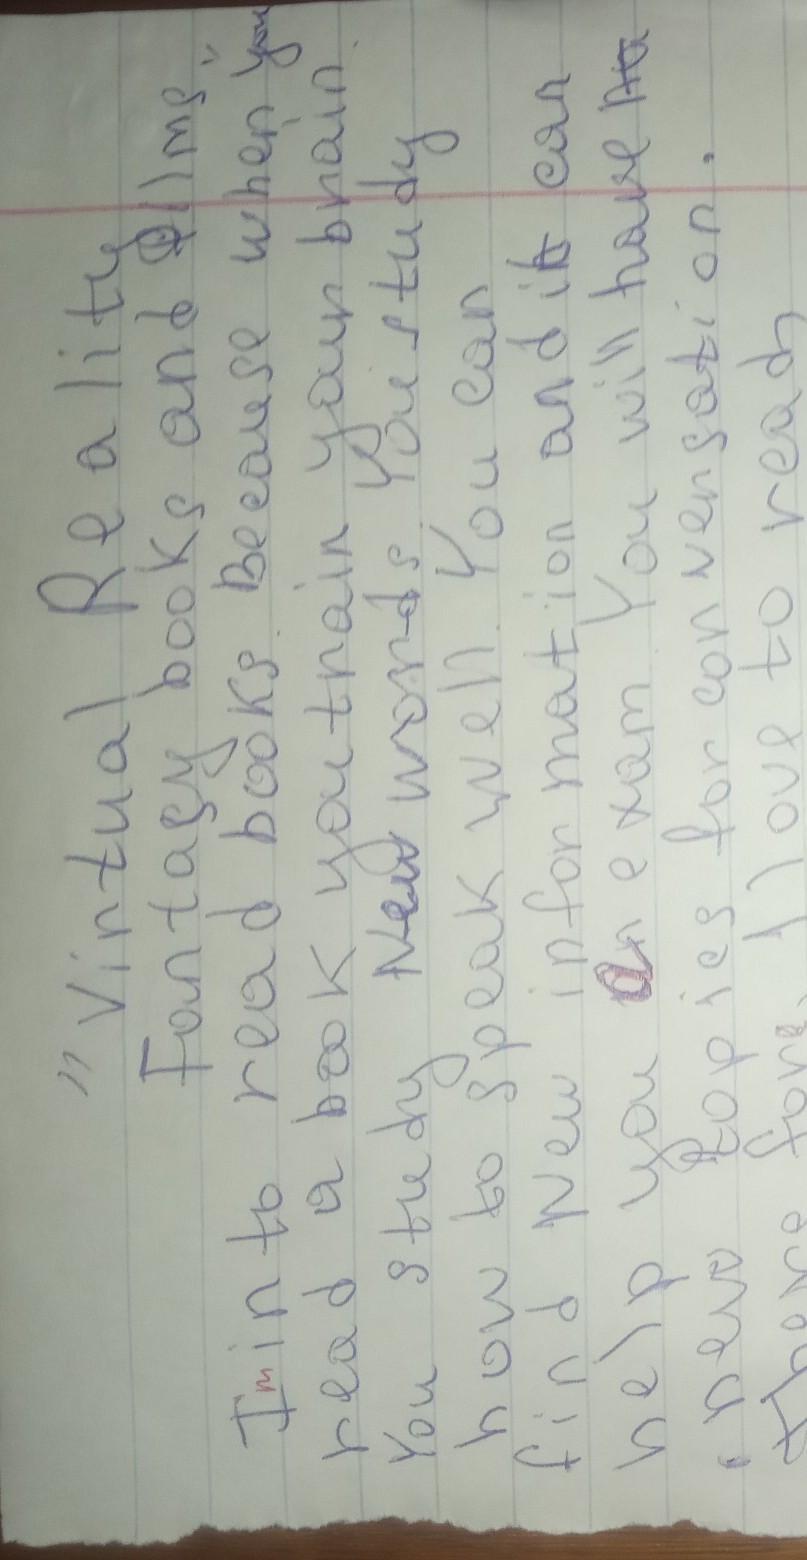 "Virtual Reality
Fantasy books and films"
I'm into read books. Because when you
read a book you train your brain.
You study New words. You study
how to speak well. You can
find New information and it can
help you an exam. You will have
new topics for conversation.
There fore, I love to read